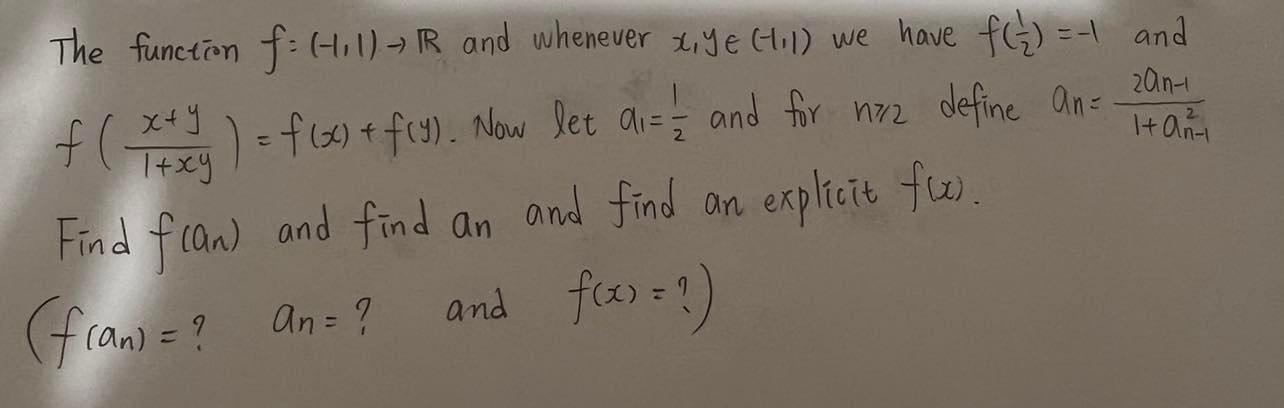 The function f: (-1,1) → ℝ and whenever x,y ∈ (-1,1) we have f(1/2) = -1 and
f( (x+y)/(1+xy) ) = f(x) + f(y). Now let a₁ = 1/2 and for n≥2 define an = 2aₙ₋₁/(1+a²ₙ₋₁)
Find f(an) and find an and find an explicit f(x).
(f(an) = ? an = ? and f(x) = ?)